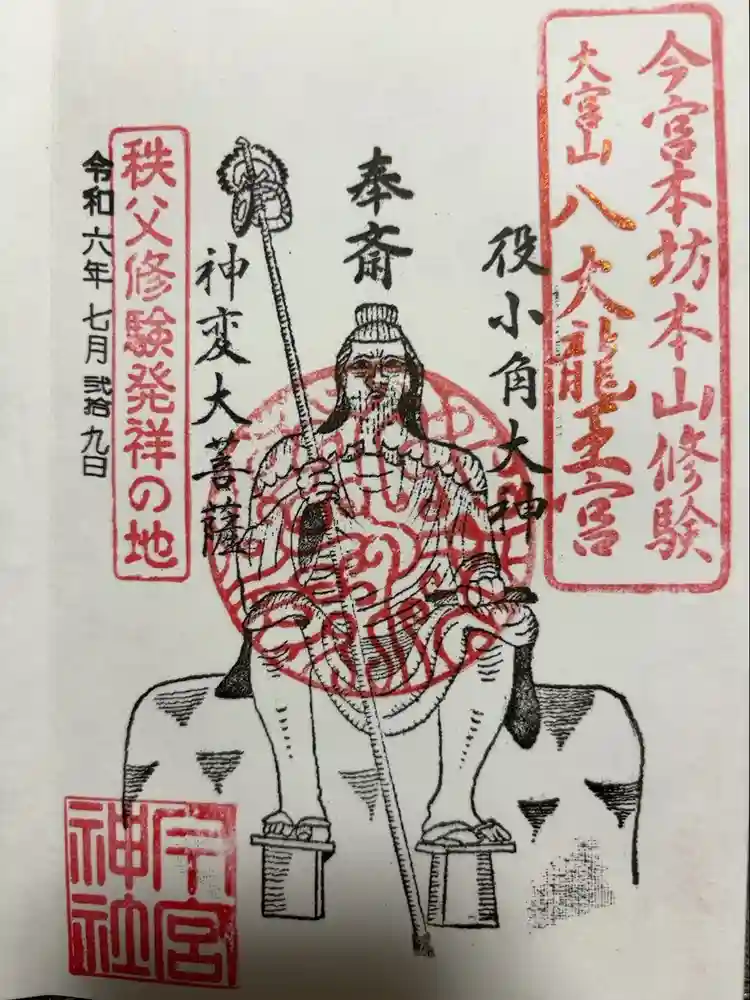 今宮本坊本山修験
大宮山 八大龍王宮
役小角大神
奉斎
神変大菩薩
秩父修験発祥の地
令和六年 七月 弐拾九日
今宮
神社